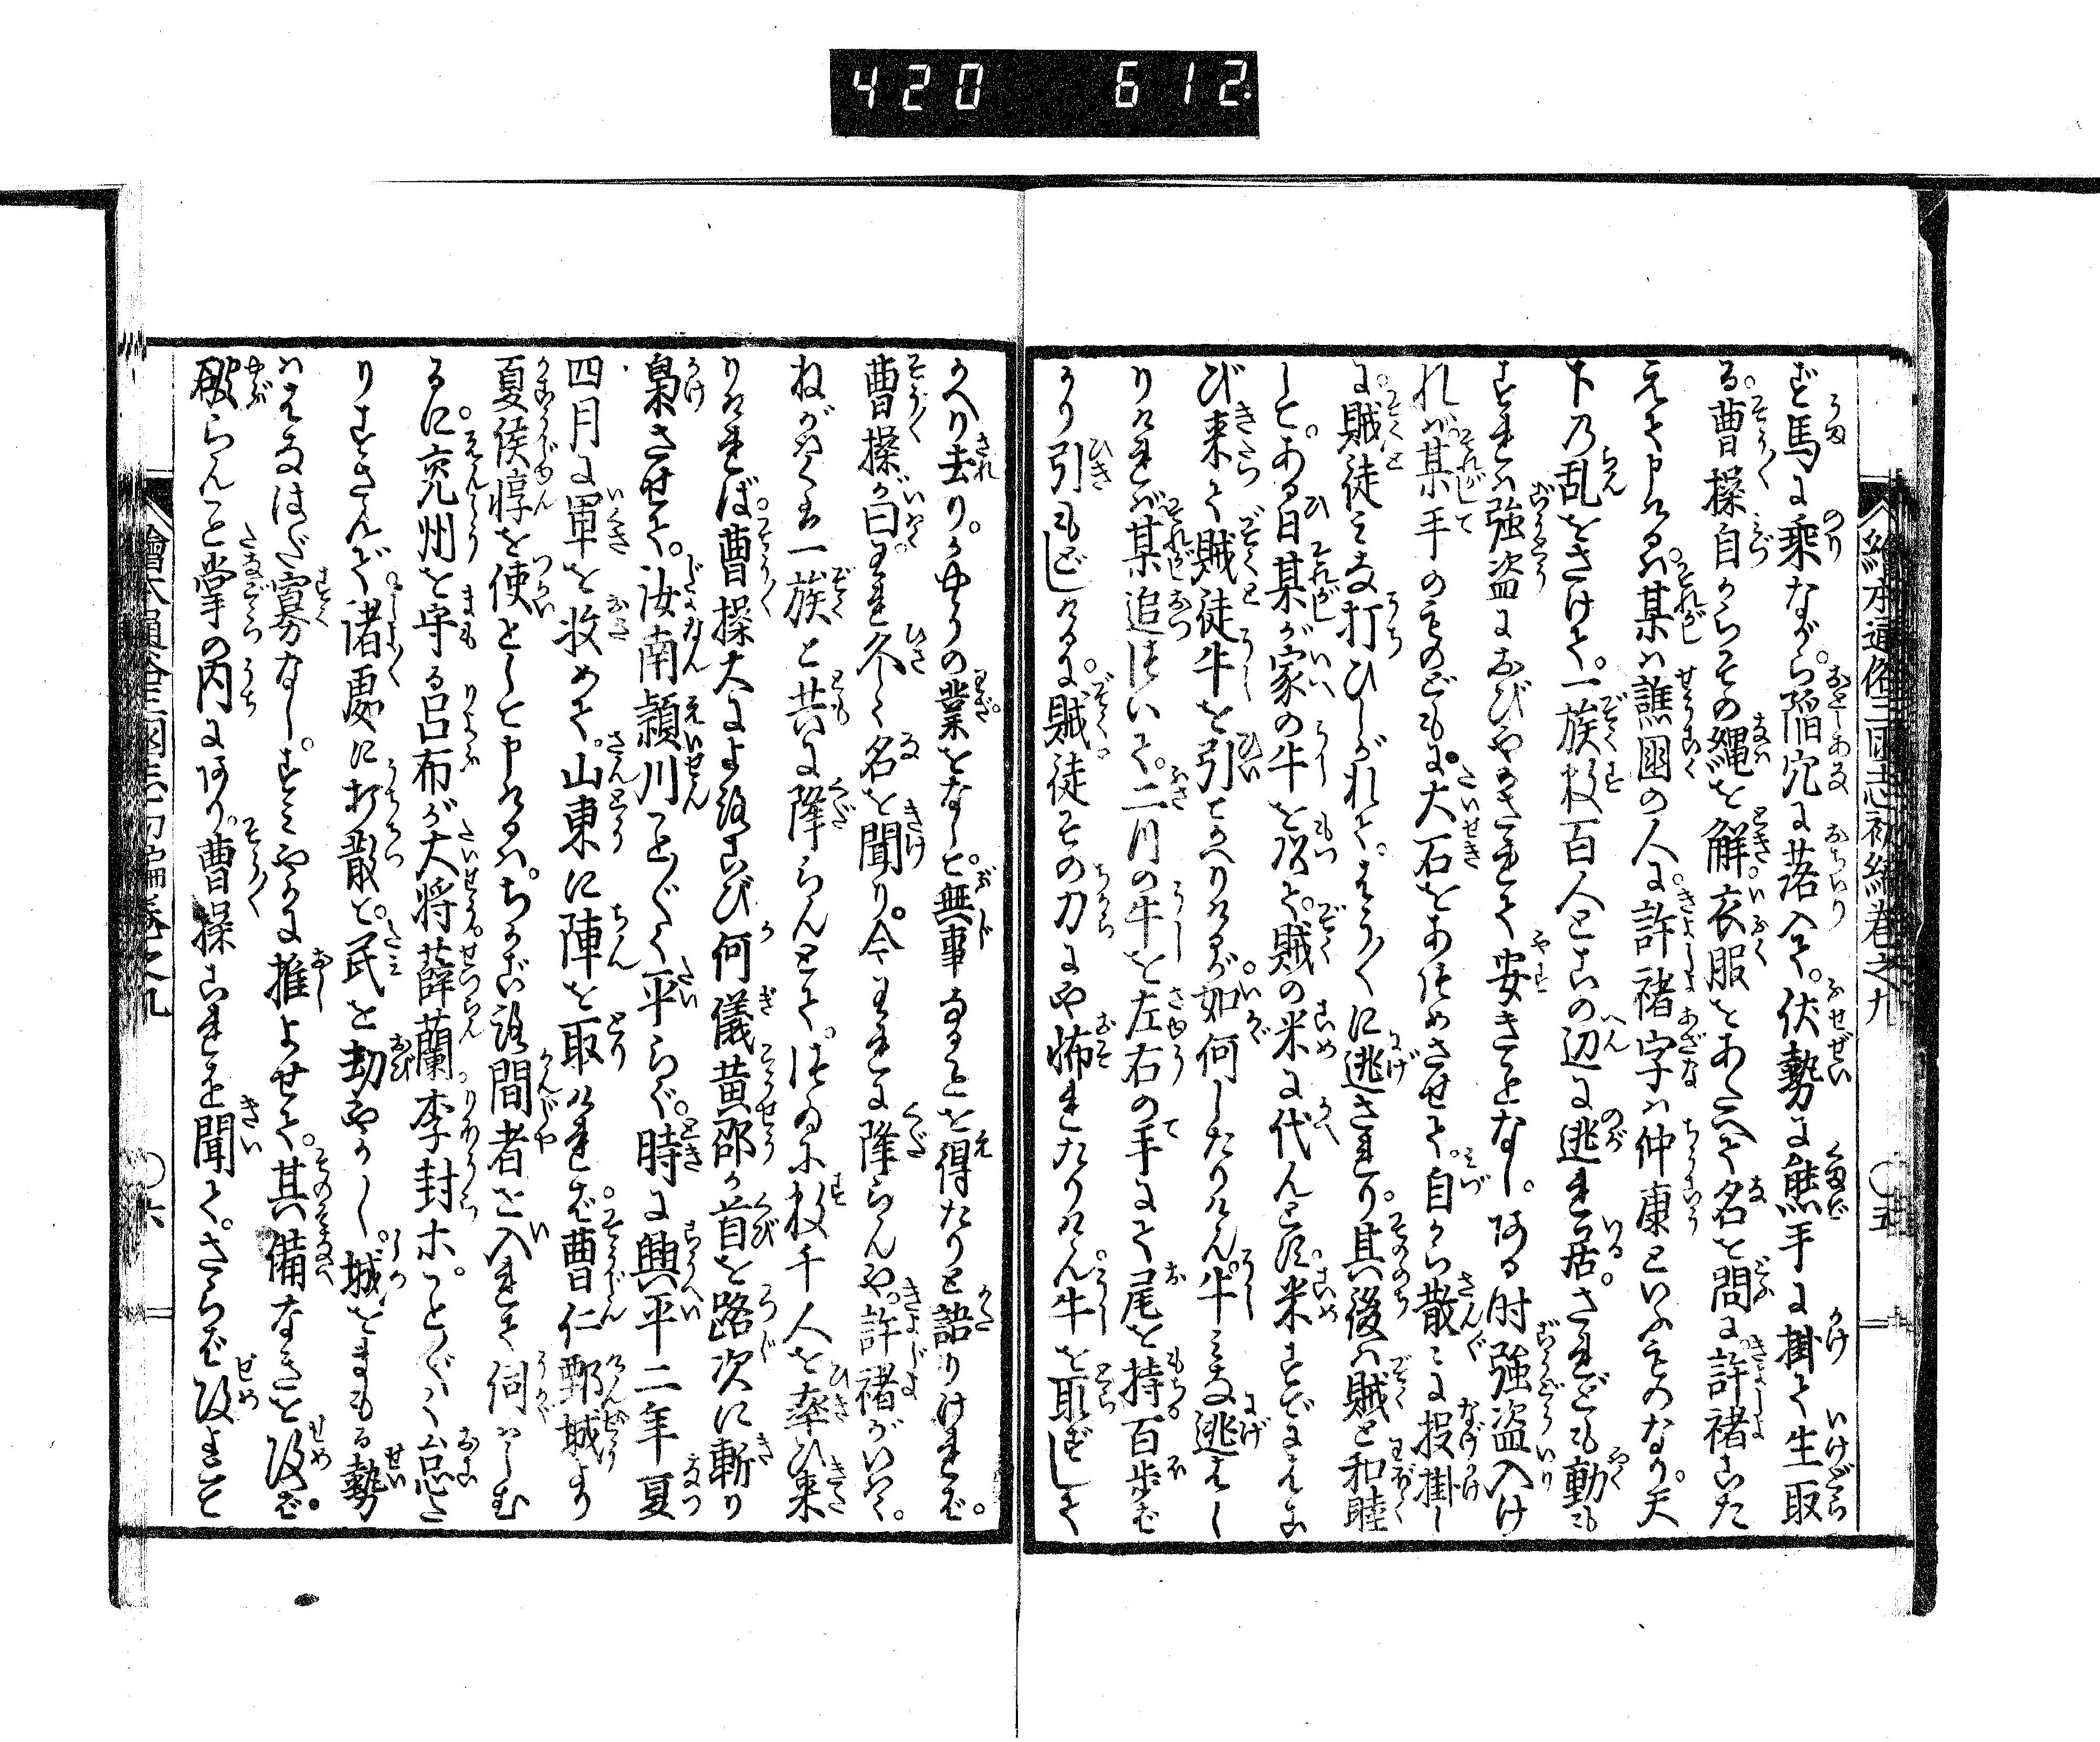 420 612.
繪本通俗三国志初編巻之九 〇五
ど馬に乗ながら。陥穴に落入て。伏勢に熊手に掛て生取
る。曹操自からその縄を解。衣服をあたへて名を問に。許褚こた
えて申けるハ。某ハ譙國の人に。許褚字ハ仲康といふものなり。天
下乃乱をさけて。一族数百人とこの辺に逃れ居。されども動も
すれハ強盗におびやかされて安きことなし。ある时強盗入け
れバ。某手のものどもに。大石をあつめさせて。自から散〻に投掛し
に。賊徒ミな打ひしがれて。ちり〴〵に逃されり。其後ハ賊と和睦
して。ある日某が家の牛を以て。賊の米に代んとす。米すでにはこ
び来て賊徒牛を引てかへりけるが。如何したりけん。牛ミな逃はし
りけれバ。某追つハいて。二刀の牛を左右の手にて尾を持百歩ば
かり引もどしけるに。賊徒その力にや怖れたりけん。牛を取ずして
かへり去り。かやうの業をなして。無事なることを得たりと語りけれバ。
曹操が曰。われ久く名を聞り。今われに降らんや。許褚がいハく。
ねがハくハ一族と共に降らんとて。つゐに数千人を率ひ来
りけれバ。曹操大によろこび何儀黄邵が首を路次に斬り
梟させて。汝南潁川こと〴〵く平らぐ。時に興平二年夏
四月に軍を收めて。山東に陣を取けれバ。曹仁鄄城より
夏侯惇を使として申けるハ。ちかごろ間者を入れて伺ハしむ
るに。兗州を守る呂布が大将薛蘭。李封ホ。こと〴〵く怠た
りすさんで。諸處に打散て。民を劫やかし。城をまもる勢
ハはなはだ寡なし。すミやかに推よせて。其備なきを攻バ。
破らんこと掌の内にあり。曹操これを聞て。さらバ攻よとて
繪本通俗三國志初編巻之九 〇六